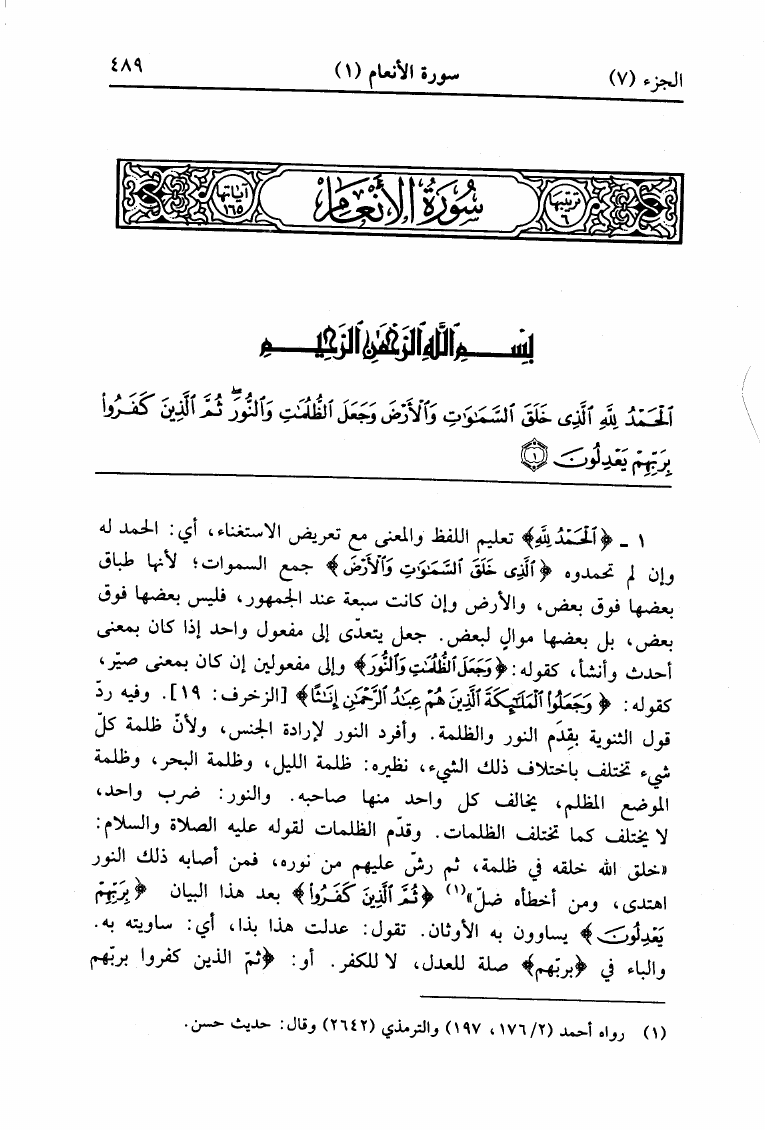 الجزء (٧)
سورة الأنعام (١)
٤٨٩
ترتيبها ٦
سُورَةُ الأَنْعَامِ
آياتها ١٦٥
بِسْمِ ٱللَّهِ ٱلرَّحْمَٰنِ ٱلرَّحِيمِ
ٱلْحَمْدُ لِلَّهِ ٱلَّذِى خَلَقَ ٱلسَّمَٰوَٰتِ وَٱلْأَرْضَ وَجَعَلَ ٱلظُّلُمَٰتِ وَٱلنُّورَ ۖ ثُمَّ ٱلَّذِينَ كَفَرُوا۟
بِرَبِّهِمْ يَعْدِلُونَ ١
١ ـ ﴿ٱلْحَمْدُ لِلَّهِ﴾ تعليم اللفظ والمعنى مع تعريض الاستغناء، أي: الحمد له
وإن لم تحمدوه ﴿ٱلَّذِى خَلَقَ ٱلسَّمَٰوَٰتِ وَٱلْأَرْضَ﴾ جمع السموات؛ لأنها طباق
بعضها فوق بعض، والأرض وإن كانت سبعة عند الجمهور، فليس بعضها فوق
بعض، بل بعضها موالٍ لبعض. جعل يتعدّى إلى مفعول واحد إذا كان بمعنى
أحدث وأنشأ، كقوله: ﴿وَجَعَلَ ٱلظُّلُمَٰتِ وَٱلنُّورَ﴾ وإلى مفعولين إن كان بمعنى صيّر،
كقوله: ﴿وَجَعَلُوا۟ ٱلْمَلَٰٓئِكَةَ ٱلَّذِينَ هُمْ عِبَٰدُ ٱلرَّحْمَٰنِ إِنَٰثًا﴾ [الزخرف: ١٩]. وفيه ردّ
قول الثنوية بقِدَم النور والظلمة. وأفرد النور لإرادة الجنس، ولأنّ ظلمة كلّ
شيء تختلف باختلاف ذلك الشيء، نظيره: ظلمة الليل، وظلمة البحر، وظلمة
الموضع المظلم، يخالف كل واحد منها صاحبه. والنور: ضرب واحد،
لا يختلف كما تختلف الظلمات. وقدّم الظلمات لقوله عليه الصلاة والسلام:
«خلق الله خلقه في ظلمة، ثم رشّ عليهم من نوره، فمن أصابه ذلك النور
اهتدى، ومن أخطأه ضلّ»(١) ﴿ثُمَّ ٱلَّذِينَ كَفَرُوا۟﴾ بعد هذا البيان ﴿بِرَبِّهِمْ
يَعْدِلُونَ﴾ يساوون به الأوثان. تقول: عدلت هذا بذا، أي: ساويته به.
والباء في ﴿بربّهم﴾ صلة للعدل، لا للكفر. أو: ﴿ثمّ الذين كفروا بربّهم
(١) رواه أحمد (٢/ ١٧٦، ١٩٧) والترمذي (٢٦٤٢) وقال: حديث حسن.